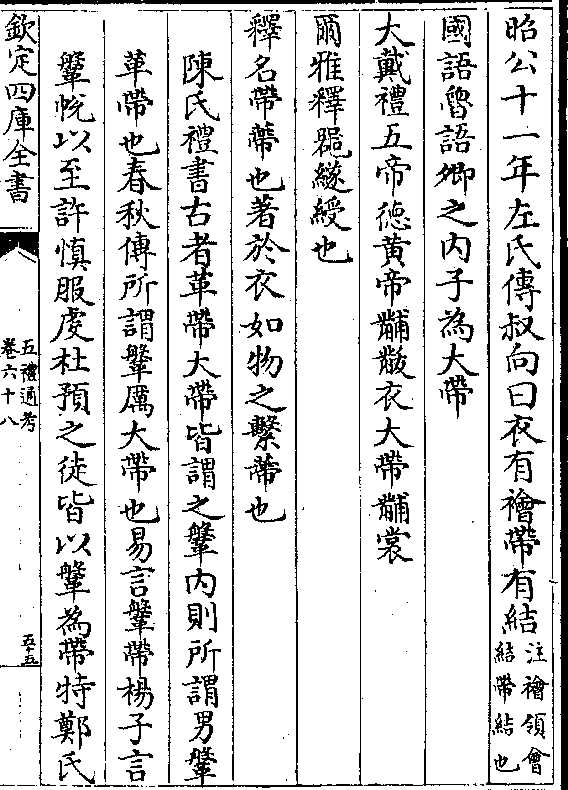 昭公十一年左氏傳叔向曰衣有襘帶有結注襘領會結帶結也
國語魯語卿之内子為大帶
大戴禮五帝德黄帝黼黻衣大帶黼裳
爾雅釋器繸綬也
釋名帶蔕也著於衣如物之繫蔕也
陳氏禮書古者革帶大帶皆謂之鞶内則所謂男鞶
革帶也春秋傳所謂鞶厲大帶也易言鞶帶楊子言
鞶帨以至許慎服虔杜預之徒皆以鞶為帶特鄭氏
欽定四庫全書
五禮通考
卷六十八
五十五